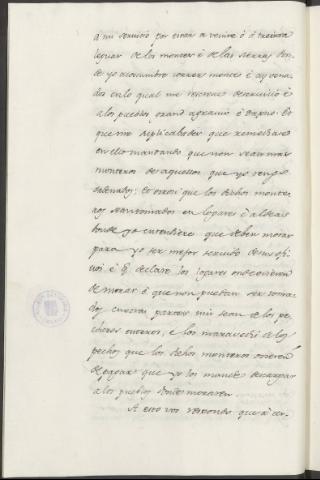 á mi servicio por estar á veinte é á treinta
leguas de los montes é de las sierras don-
de yo acostumbro correr montes é ay vena-
dos en lo qual me recrece deservicio é
a los pueblos grand agravio é danno. Por
que me suplicabades que remediase
en ello mandando que non sean mas
monteros de aquellos que yo tengo
ordenados; et otrosi que los dichos monte-
ros sean tomados en logares é aldeas
donde yo entendiere que deben morar
para yo ser mejor servido de sus ofi-
cios é que declare los logares onde ovieren
de morar é que non puedan ser toma-
dos
pecheros enteros, e los maravedis de los
pechos que los dichos monteros ovieren
de pagar que yo los mande descargar
a los pueblos donde moraren.
A esto vos respondo que á cer-